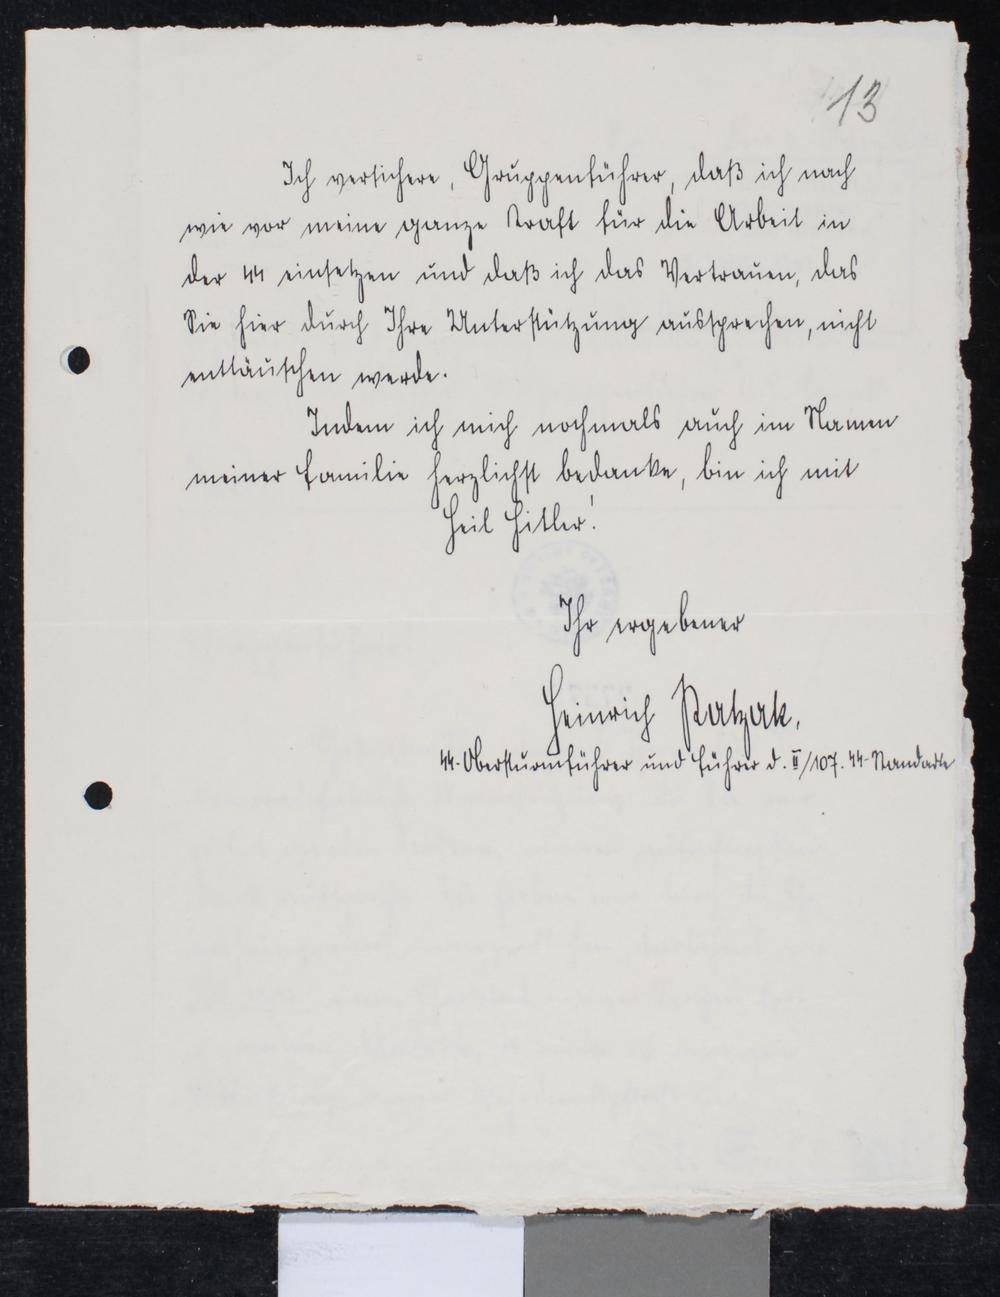 13
Ich versichere, Gruppenführer, daß ich nach
wie vor meine ganze Kraft für die Arbeit in
der SS einsetzen und daß ich das Vertrauen, das
Sie hier durch Ihre Unterstützung aussprechen, nicht
enttäuschen werde.
Indem ich mich nochmals auch im Namen
meiner Familie herzlichst bedanke, bin ich mit
Heil Hitler!
Ihr ergebener
Heinrich Katzak,
SS-Obersturmführer und Führer d. II/107. SS-Standarte